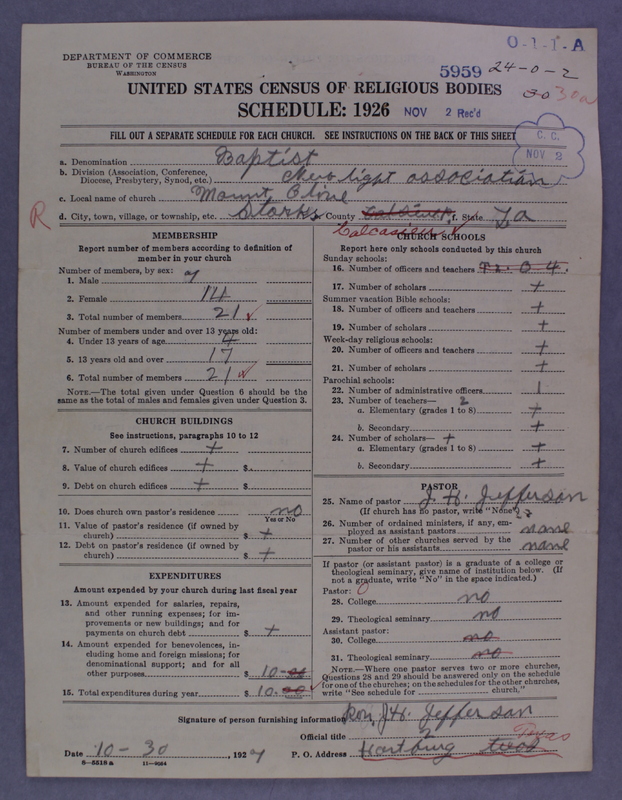 O-1-1-A
DEPARTMENT OF COMMERCE
BUREAU OF THE CENSUS
WASHINGTON
5959 24-0-2
UNITED STATES CENSUS OF RELIGIOUS BODIES
30 30a
SCHEDULE: 1926 NOV 2 Rec'd
FILL OUT A SEPARATE SCHEDULE FOR EACH CHURCH. SEE INSTRUCTIONS ON THE BACK OF THIS SHEET
C. C.
NOV 2
a. Denomination Baptist
b. Division (Association, Conference,
Diocese, Presbytery, Synod, etc.) New light association
c. Local name of church Mount Olive
d. City, town, village, or township, etc. Starks County f. State La
R
Calcasieu
MEMBERSHIP
Report number of members according to definition of
member in your church
Number of members, by sex:
1. Male 7
2. Female 14
3. Total number of members 21
Number of members under and over 13 years old:
4. Under 13 years of age 4
5. 13 years old and over 17
6. Total number of members 21
NOTE.—The total given under Question 6 should be the
same as the total of males and females given under Question 3.
CHURCH BUILDINGS
See instructions, paragraphs 10 to 12
7. Number of church edifices +
8. Value of church edifices + $
9. Debt on church edifices + $
10. Does church own pastor's residence no
Yes or No
11. Value of pastor's residence (if owned by
church) $ +
12. Debt on pastor's residence (if owned by
church) $ +
EXPENDITURES
Amount expended by your church during last fiscal year
13. Amount expended for salaries, repairs,
and other running expenses; for im-
provements or new buildings; and for
payments on church debt $ +
14. Amount expended for benevolences, in-
cluding home and foreign missions; for
denominational support; and for all
other purposes $ 10-
15. Total expenditures during year $ 10.00
CHURCH SCHOOLS
Report here only schools conducted by this church
Sunday schools:
16. Number of officers and teachers
17. Number of scholars +
Summer vacation Bible schools:
18. Number of officers and teachers +
19. Number of scholars +
Week-day religious schools:
20. Number of officers and teachers +
21. Number of scholars +
Parochial schools:
22. Number of administrative officers 1
23. Number of teachers— 2
a. Elementary (grades 1 to 8) +
b. Secondary +
24. Number of scholars— +
a. Elementary (grades 1 to 8) +
b. Secondary +
PASTOR
25. Name of pastor J. H. Jefferson
(If church has no pastor, write "None")
26. Number of ordained ministers, if any, em-
ployed as assistant pastors none
27. Number of other churches served by the
pastor or his assistants none
If pastor (or assistant pastor) is a graduate of a college or
theological seminary, give name of institution below. (If
not a graduate, write "No" in the space indicated.)
Pastor: 0
28. College no
29. Theological seminary no
Assistant pastor:
30. College no
31. Theological seminary no
NOTE.—Where one pastor serves two or more churches,
Questions 28 and 29 should be answered only on the schedule
for one of the churches; on the schedules for the other churches,
write "See schedule for church."
Signature of person furnishing information J. H. Jefferson
Official title 2 Texas
Date 10-30, 1927 P. O. Address Hartburg
8—5518a 11—9064